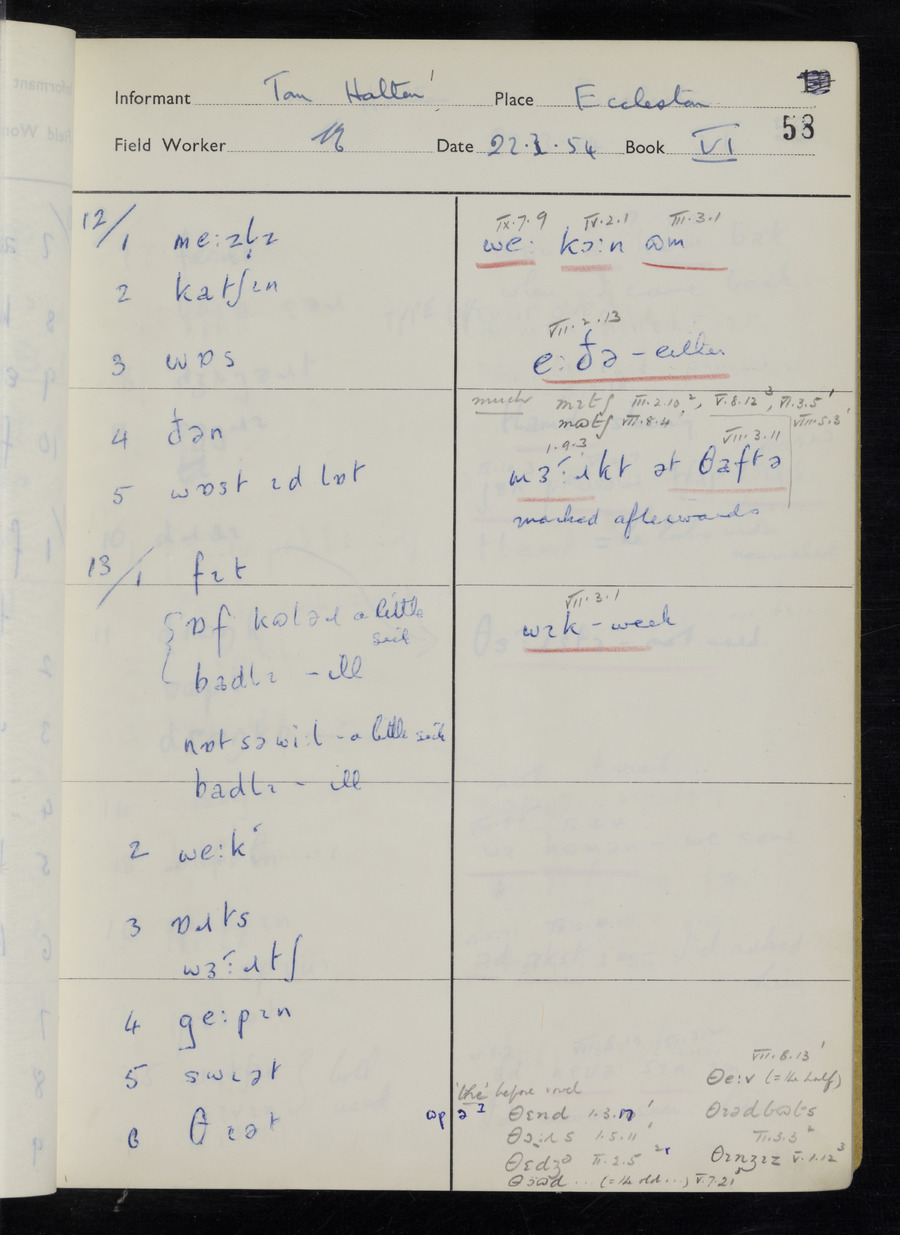 Informant Tom Halton Place Eccleston
58
Field Worker Date 22.3.54 Book VI
12/1 me:zl̩z
2 katʃɪn
3 wɒs
4 ðən
5 wɒst ɪd lɒt
13/1 fɪt
ɒf kɷləɹ a little
sick
badlɪ - ill
nɒt sə wi:l - a little sick
badlɪ - ill
2 we:k
3 ɒɹts
wɜ:ɹtʃ
4 ge:pɪn
5 swɛət
6 θɪət
IX.7.9 IV.2.1 III.3.1
we: kɔ:n ɷm
VII.2.13
e:ðə - either
much mɪtʃ III.2.10², V.8.12³, VI.3.5¹
mɷtʃ VII.8.4¹ VIII.5.3¹
1.9.3 VIII.3.11
mɜ:ɹkt ət θaftə
marked afterwards
VII.3.1
wɪk - week
'the' before vowel
θɛnd 1.3.17¹
1.5.11¹
θɛdʒ II.2.5
(= the old ...) V.7.21
VII.8.13¹
θe:v (= the half)
II.3.3²
V.1.12³